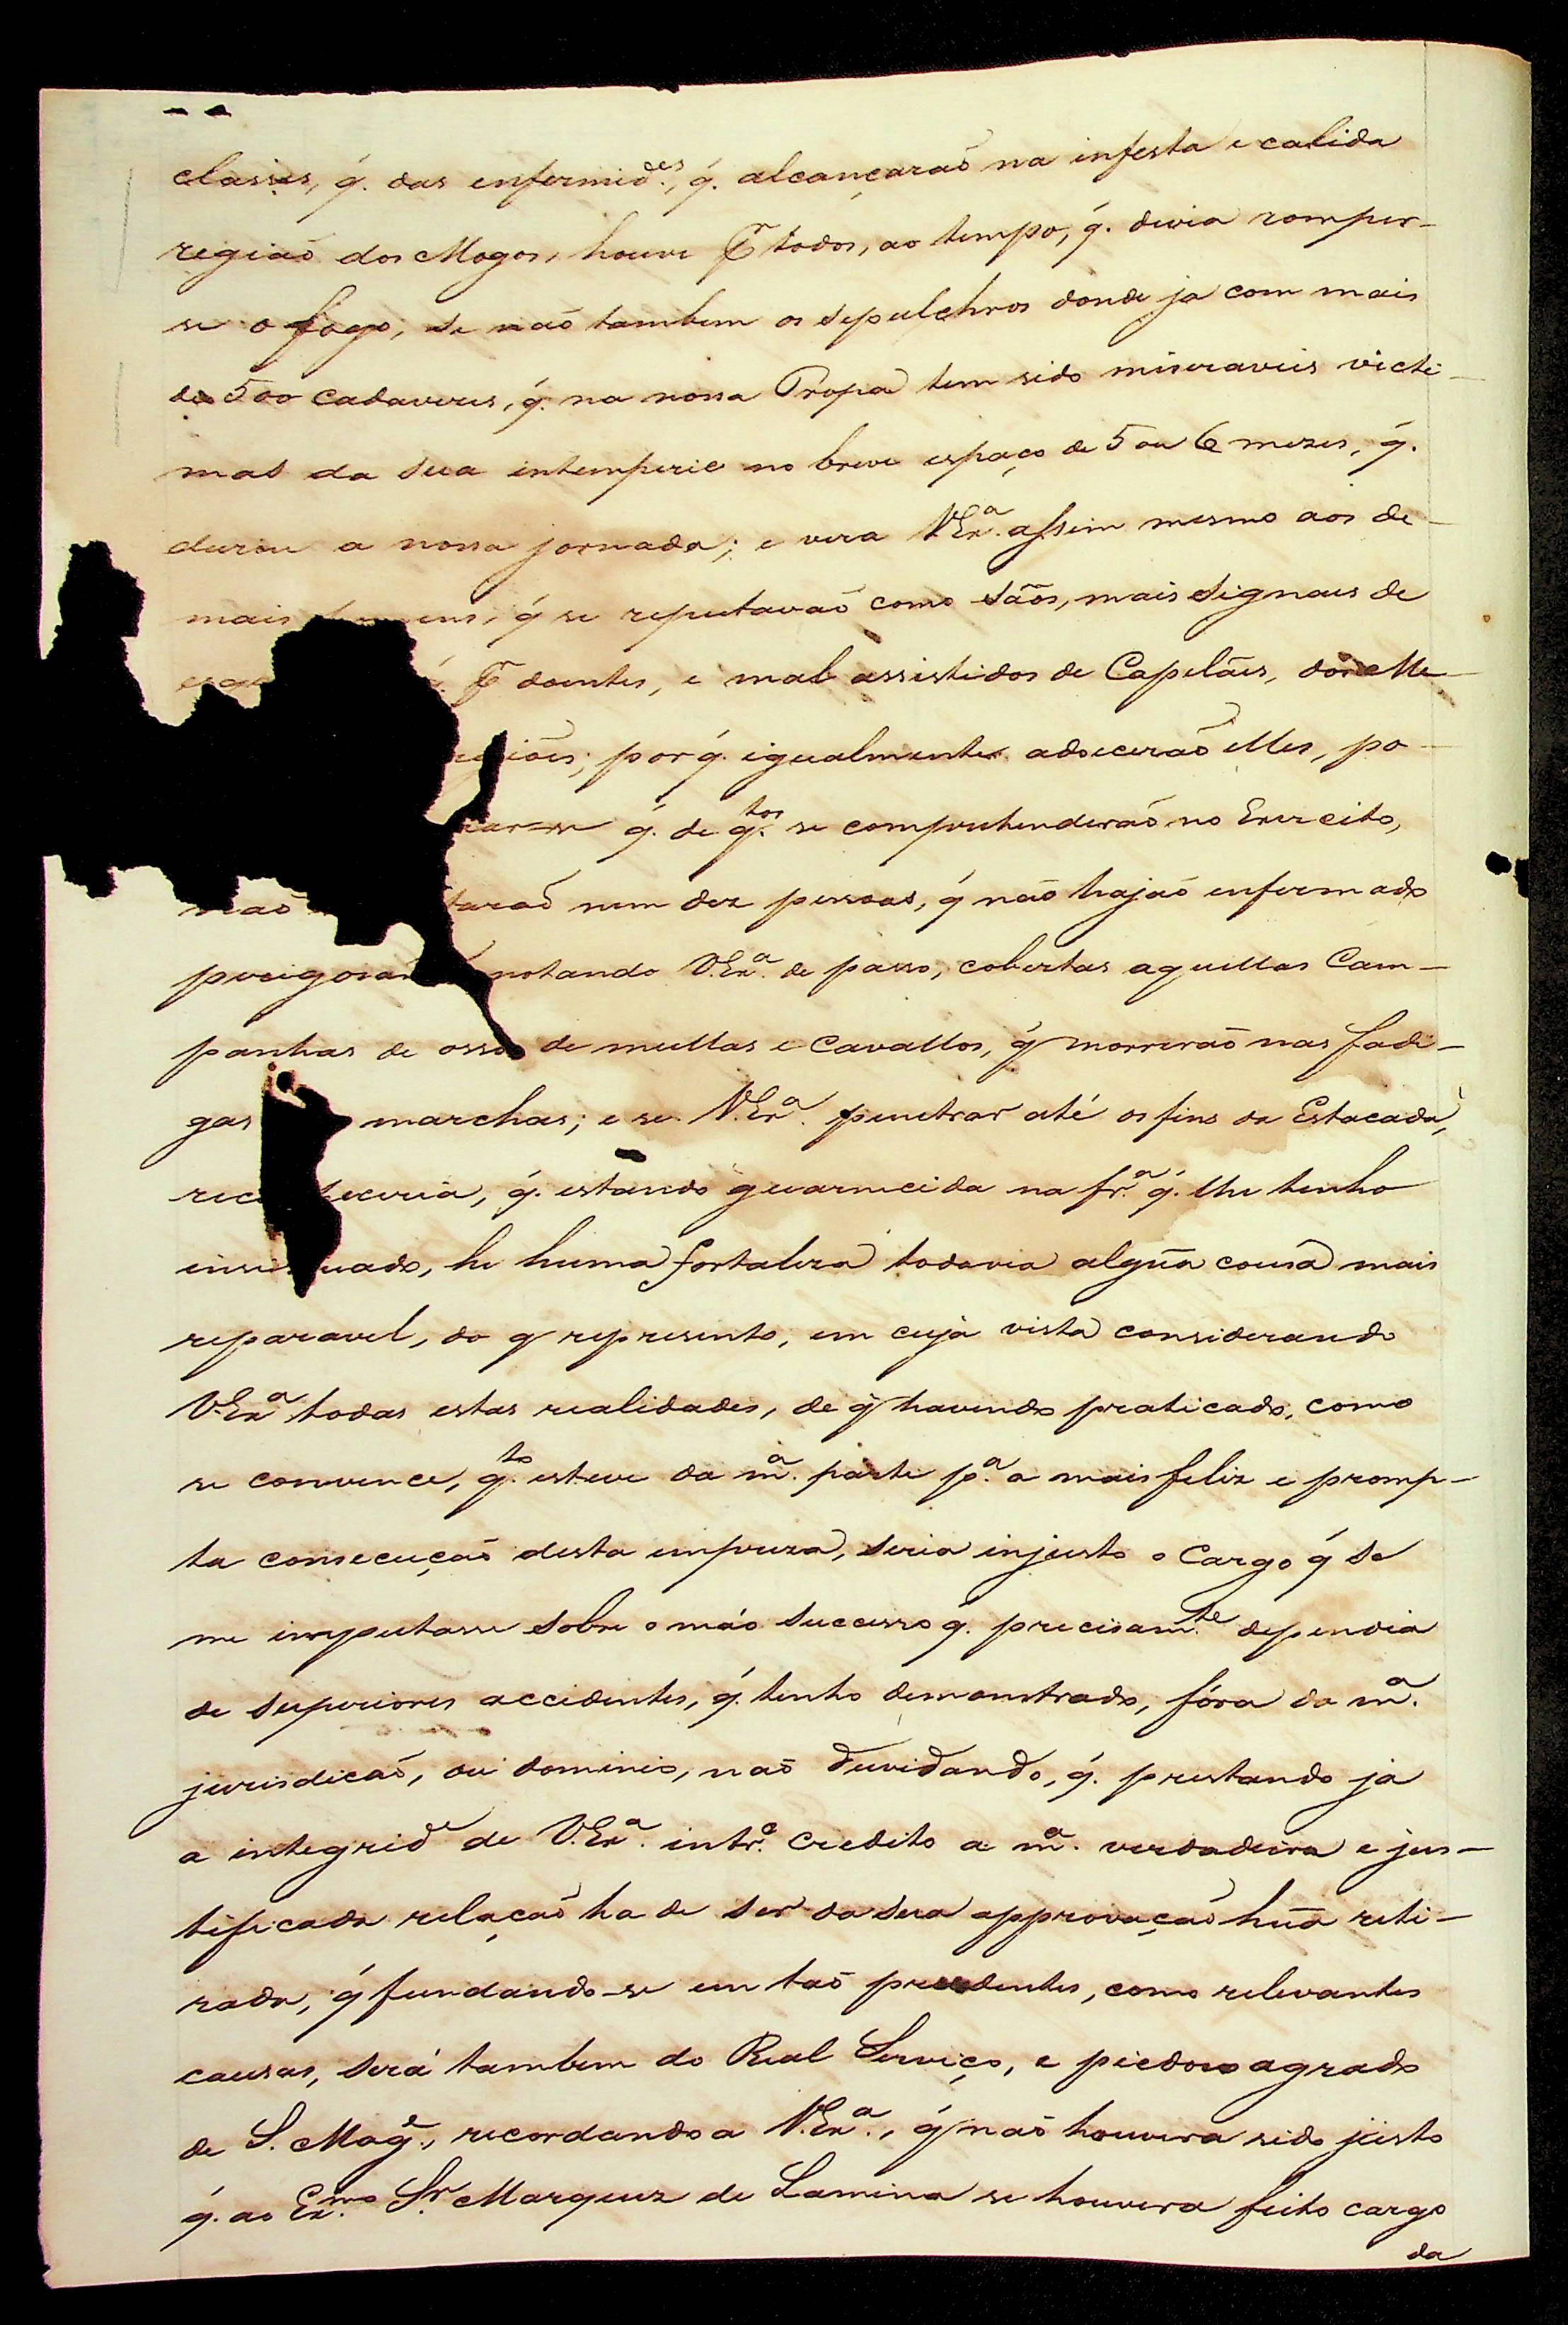 classes, q̃. das enfermid.es, q̃. alcançaraõ na infesta e calida
regiaõ dos Mogos, houve p̃ todos, ao tempo, q̃. devia romper-
se o fogo, se naõ tambem os sepulchros donde ja com mais
de 500 cadaveres, q̃. na nossa Tropa tem sido miseraveis victi-
mas da sua intemperie no breve espaço de 5 ou 6 mezes, q̃.
durou a nossa jornada; e vera V.Ex.ª assim mesmo aos de-
mais q̃ se reputavaõ como sãos, mais signaes de
p̃ doentes, e mal assistidos de Capelães, dos Me-
giões; por q̃. igualmente adoeceraõ elles, po-
car-se q̃. de q.tos se comprehenderaõ no Exercito,
naõ taraõ nem dez pessoas, q̃ não hajaõ enfermado
perigosam notando V.Ex.ª de passo, cobertas aquellas Cam-
panhas de ossos de mullas e cavallos, q̃ morreraõ nas fadi-
gas marchas; e se V.Ex.ª penetrar até os fins da Estacada,
rec eceria, q̃. estando guarnecida na fr.ª q̃. lhe tenho
insi uado, he huma fortaleza todavia algũa cousa mais
reparavel, do q̃ represento, em cuja vista considerando
V.Ex.ª todas estas realidades, de q̃ havendo praticado, como
se convence, q.to esteve da m.ª parte p.ª a mais feliz e promp-
ta consecuçaõ desta empreza, seria injusto o cargo q̃ se
me imputasse sobre o máo successo q̃. precisam.te dependia
de superiores accidentes, q̃. tenho demonstrado, fóra da m.ª
jurisdicaõ, ou dominio, naõ duvidando, q̃. prestando ja
a integrid.e de V.Ex.ª intr.º credito a m.ª verdadeira e jus-
tificada relaçaõ ha de ser da sua approvaçaõ hũa reti-
rada, q̃ fundando-se em taõ prudentes, como relevantes
causas, será tambem do Real Serviço, e piedoso agrado
de S. Mag.e, recordando a V.Ex.ª, q̃ naõ houvera sido justo
q̃. ao Ex.mo S.r Marquez de Lamina se houvera feito cargo
da